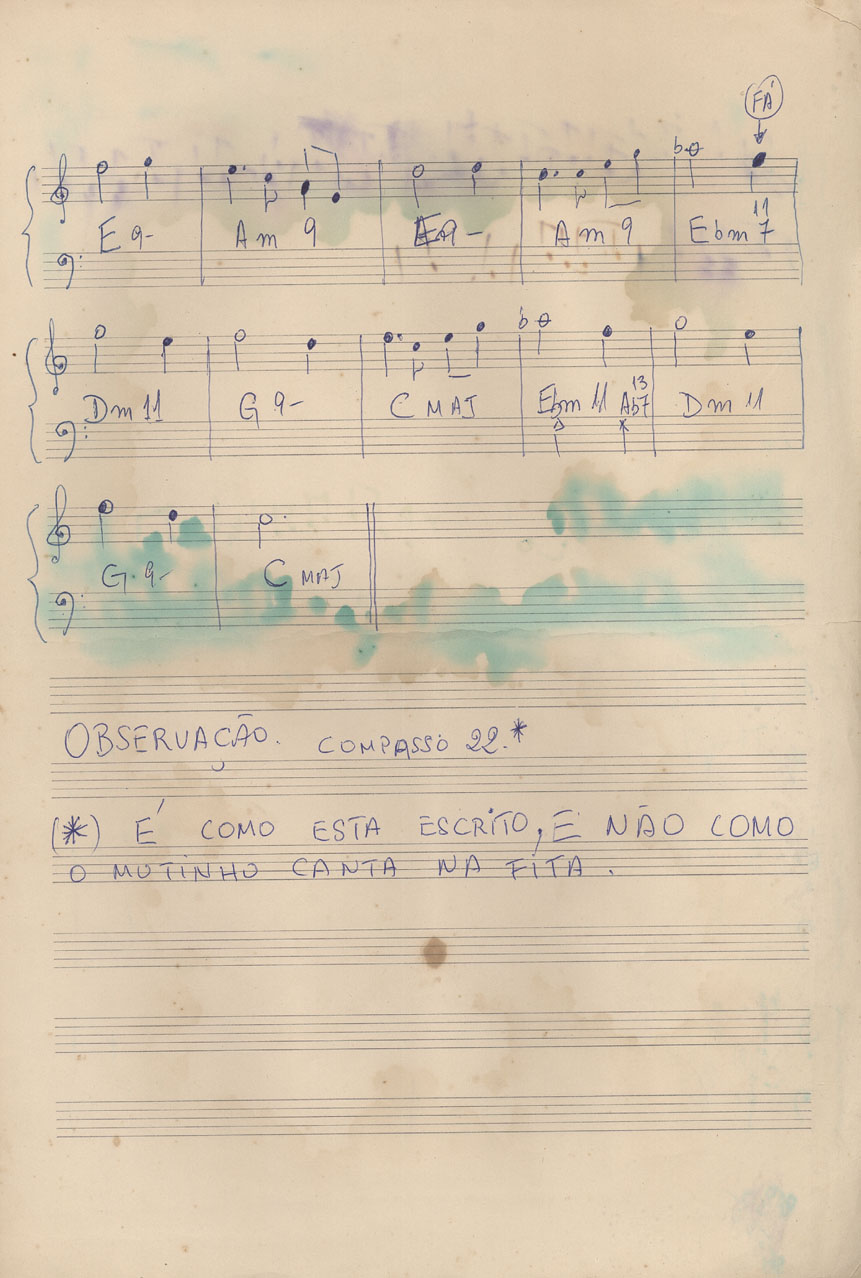 FÁ
E 9- Am 9 9- Am 9 Ebm 7 11
Dm 11 G 9- C MAJ Ebm 11 Ab7 13 Dm 11
G 9- C MAJ
OBSERVAÇÃO. COMPASSO 22.*
(*) É COMO ESTA ESCRITO, E NÃO COMO
O MUTINHO CANTA NA FITA.